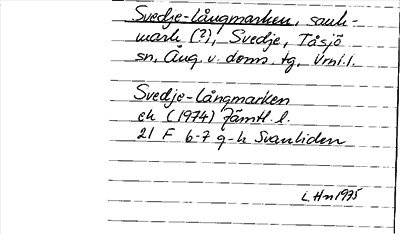 Svedje-långmarken, sank-
mark (?), Svedje, Tåsjö
sn, Ång. v. doms. tg, Vrnl.l.
Svedje-långmarken
ek (1974) Jämtl.l.
21 F 6-7 g-h Svanliden
L.Hn 1975